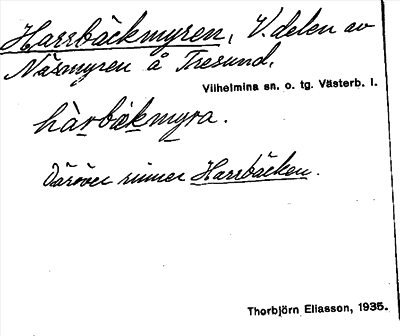 Harrbäckmyren, V. delen av
Näsmyren å Tresund.
Vilhelmina sn. o. tg. Västerb. l.
hàrbäkmyra.
Däröver rinner Harrbäcken.
Thorbjörn Eliasson, 1935.